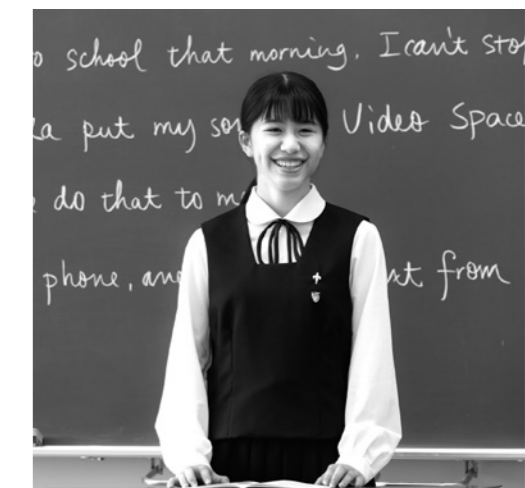 school that morning. I can't stop
put my Video Space
do that to
phone, from